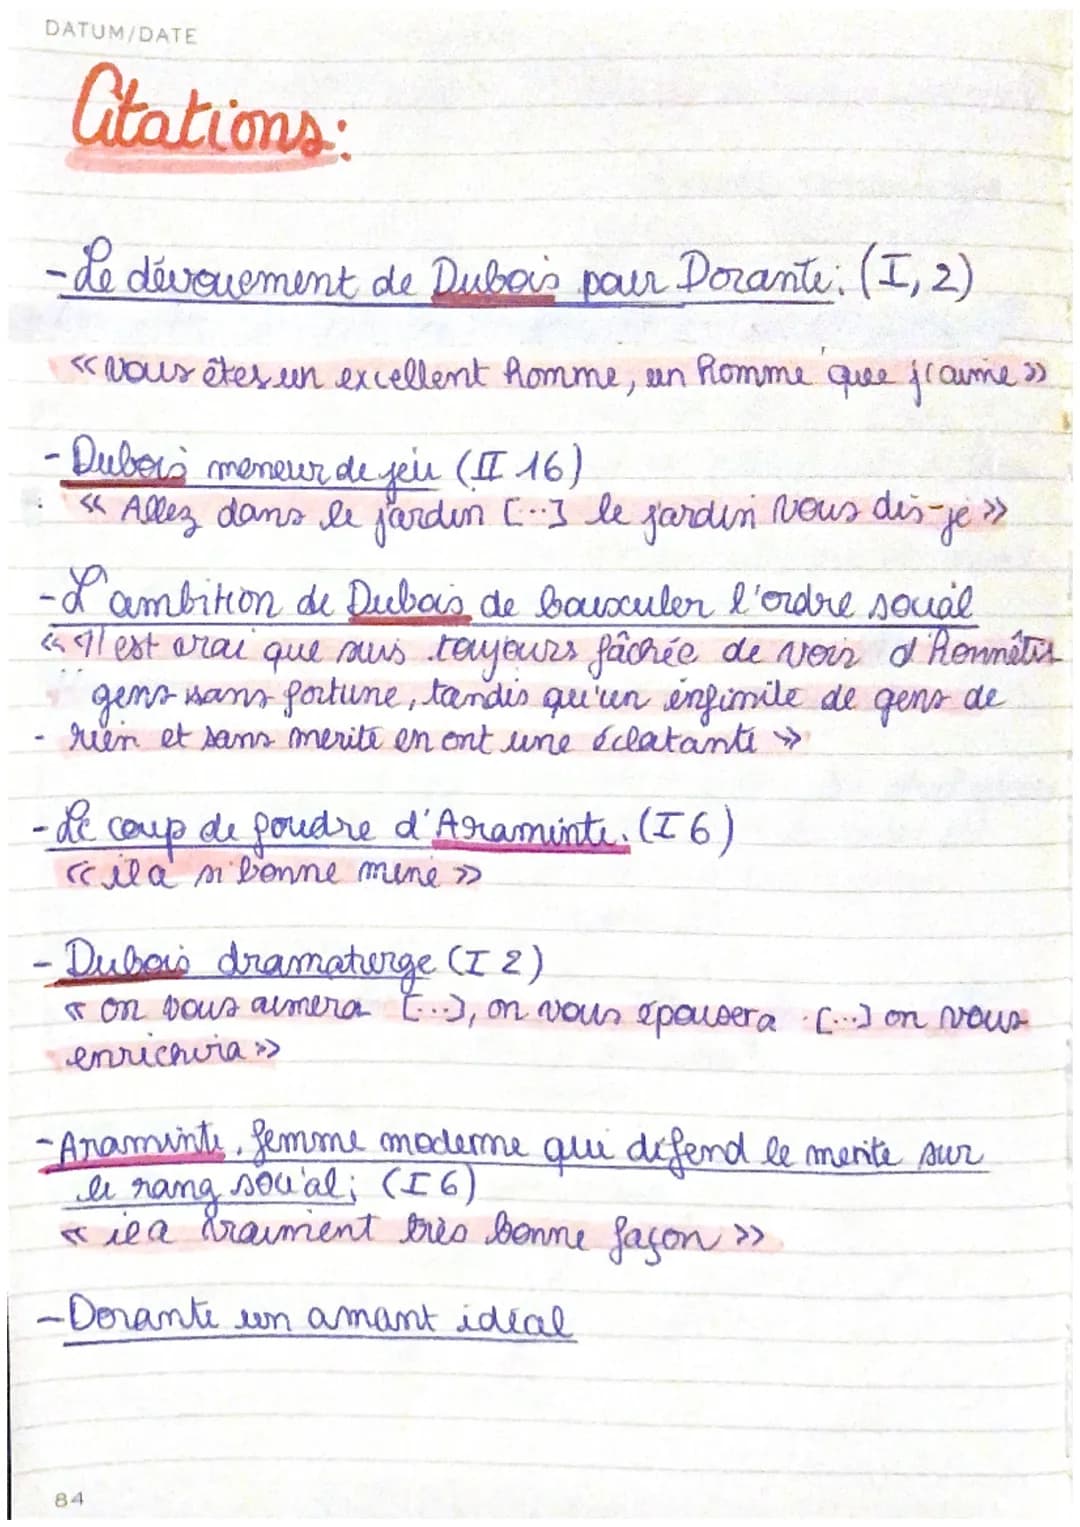 DATUM/DATE
Citations:
- Le dévouement de Dubois pour Dorante: (I, 2)
«Vous êtes un excellent homme, un homme que j'aime»
- Dubois meneur de jeu (II 16)
« Allez dans le jardin [...] le jardin vous dis-je »
- L'ambition de Dubois de bousculer l'ordre social
« Il est vrai que suis toujours fâchée de voir d'honnêtes
gens sans fortune, tandis qu'un infinité de gens de
rien et sans merite en ont une éclatante »
- Le coup de foudre d'Araminte. (I 6)
« il a si bonne mine »
- Dubois dramaturge (I 2)
« on vous aimera [...], on vous épousera [...] on vous
enrichira »
- Araminte, femme moderne qui défend le merite sur
le rang social; (I 6)
« il a vraiment très bonne façon »
- Dorante un amant idéal
84